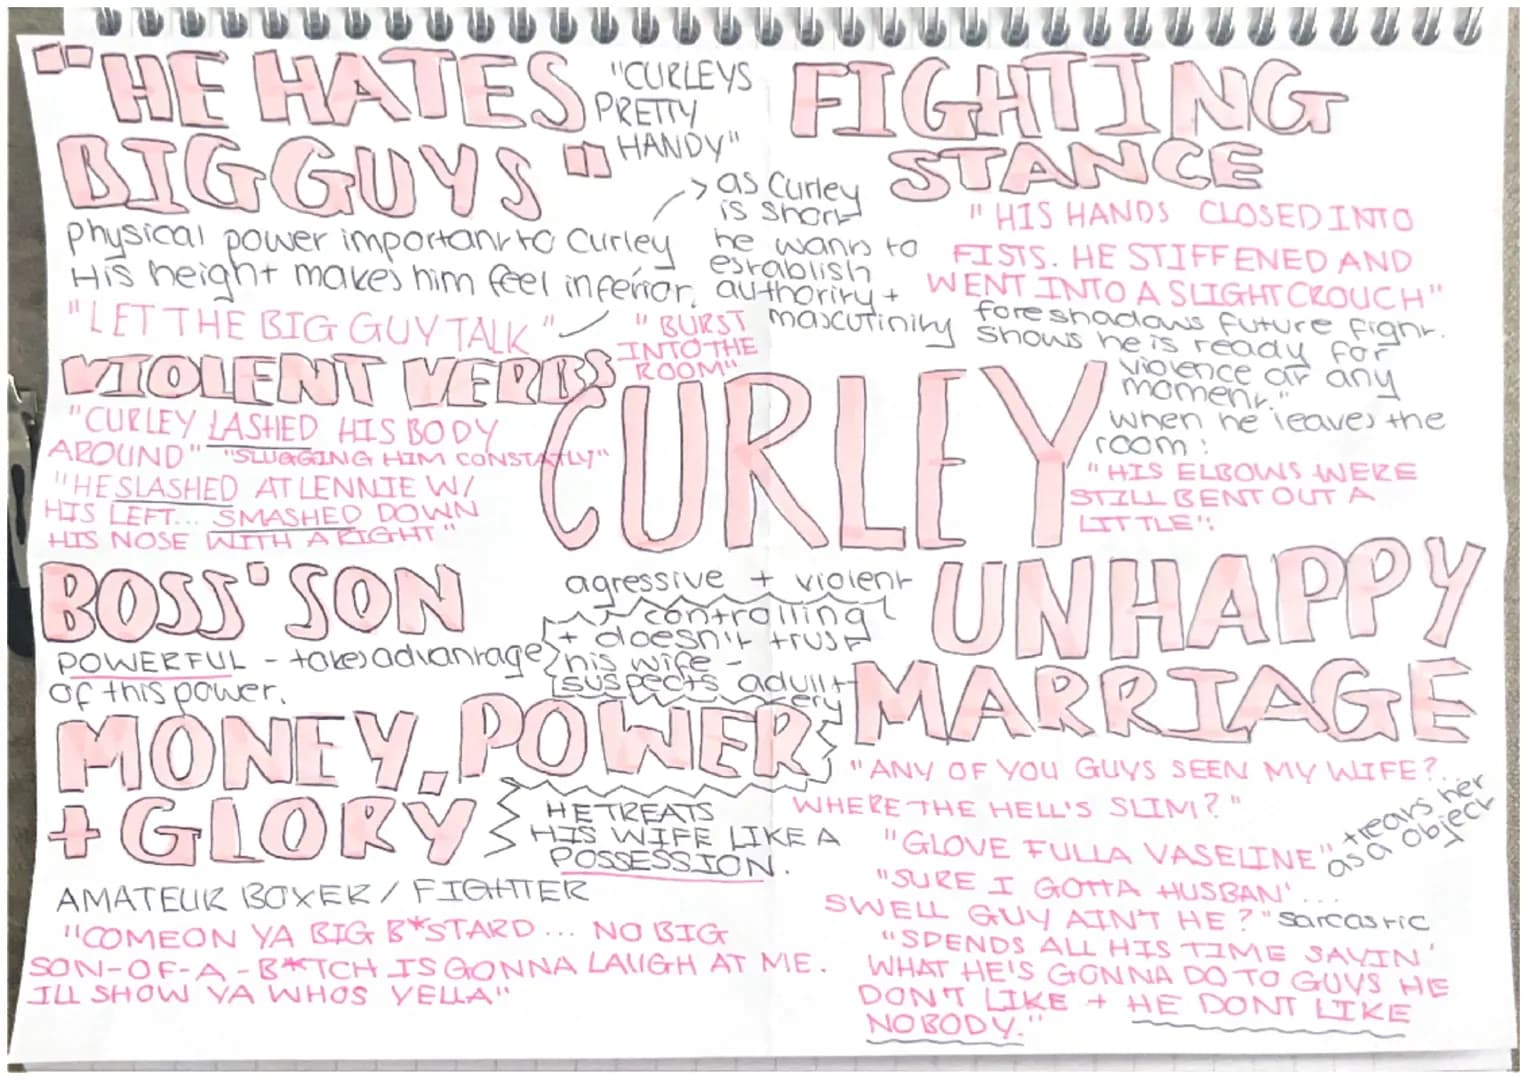 "HE HATES
BIG GUYS"
"CURLEYS
PRETTY
HANDY"
physical power important to Curley
His height makes him feel inferior.
"LET THE BIG GUY TALK"
-> as Curley
is short
he wants to
establish
authority +
masculinity
FIGHTING
STANCE
"HIS HANDS CLOSED INTO
FISTS. HE STIFFENED AND
WENT INTO A SLIGHT CROUCH"
foreshadows future fight.
shows he is ready for
violence at any
moment."
when he leaves the
room:
"HIS ELBOWS WERE
STILL BENT OUT A
LITTLE":
"BURST
INTO THE
ROOM"
VIOLENT VERBS
"CURLEY LASHED HIS BODY
AROUND" "SLUGGING HIM CONSTATLY"
"HE SLASHED AT LENNIE W/
HIS LEFT... SMASHED DOWN
HIS NOSE WITH A RIGHT"
CURLEY
BOSS' SON
POWERFUL - takes advantage
of this power.
agressive + violent
controlling
+ doesn't trust
his wife -
suspects adult
ery
MONEY, POWER
+ GLORY
HE TREATS
HIS WIFE LIKE A
POSSESSION.
AMATEUR BOXER / FIGHTER
"COMEON YA BIG B*STARD... NO BIG
SON-OF-A-B*TCH IS GONNA LAUGH AT ME.
ILL SHOW YA WHOS YELLA"
UNHAPPY
MARRIAGE
"ANY OF YOU GUYS SEEN MY WIFE?..
WHERE THE HELL'S SLIM?"
"GLOVE FULLA VASELINE"
treats her
as a object
"SURE I GOTTA HUSBAN'...
SWELL GUY AIN'T HE?" sarcastic
"SPENDS ALL HIS TIME SAYIN'
WHAT HE'S GONNA DO TO GUYS HE
DON'T LIKE + HE DONT LIKE
NOBODY."